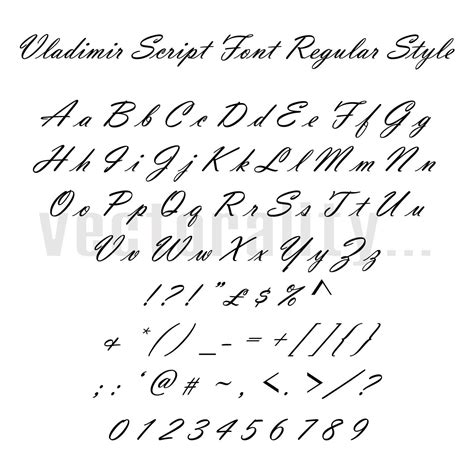 Vladimir Script Font Regular Style
A a B b C c D d E e F f G g
H h I i J j K k L l M m N n
O o P p Q q R r S s T t U u
vectorality...
V v W w X x Y y Z z
! ? ! " £ $ % ^
& * ( ) _ - = + [ ] { }
; : ‘ @ # ~ , < . > / ?
0 1 2 3 4 5 6 7 8 9